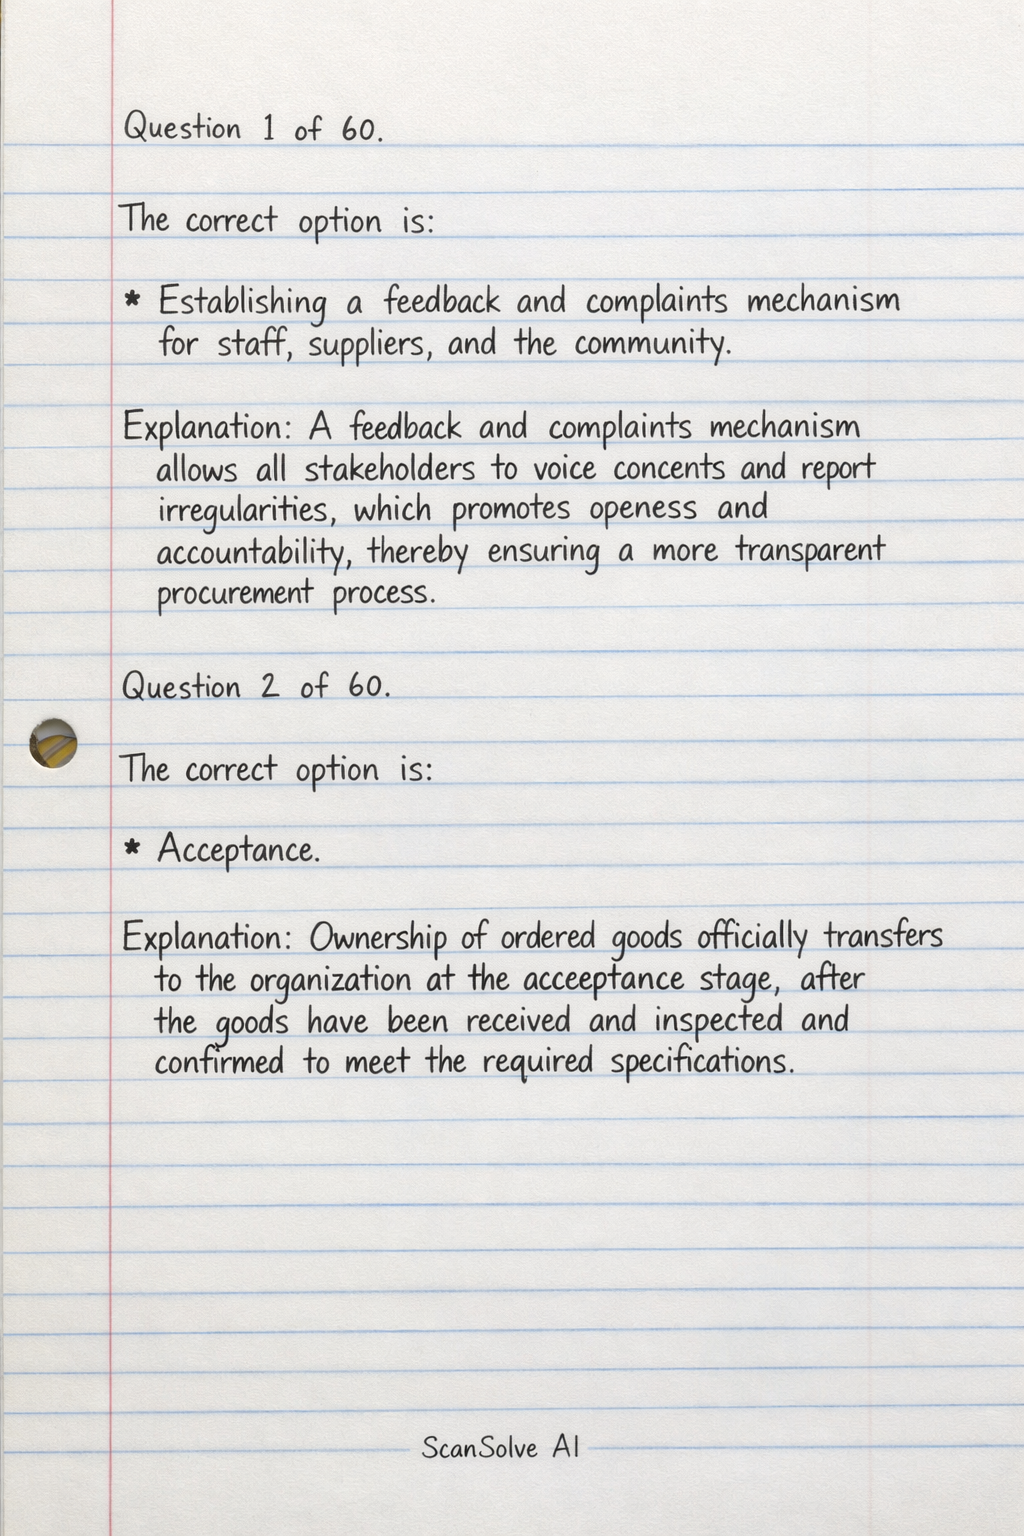 Question 1 of 60.
The correct option is:
* Establishing a feedback and complaints mechanism
for staff, suppliers, and the community.
Explanation: A feedback and complaints mechanism
allows all stakeholders to voice concents and report
irregularities, which promotes openess and
accountability, thereby ensuring a more transparent
procurement process.
Question 2 of 60.
The correct option is:
* Acceptance.
Explanation: Ownership of ordered goods officially transfers
to the organization at the acceeptance stage, after
the goods have been received and inspected and
confirmed to meet the required specifications.
ScanSolve AI